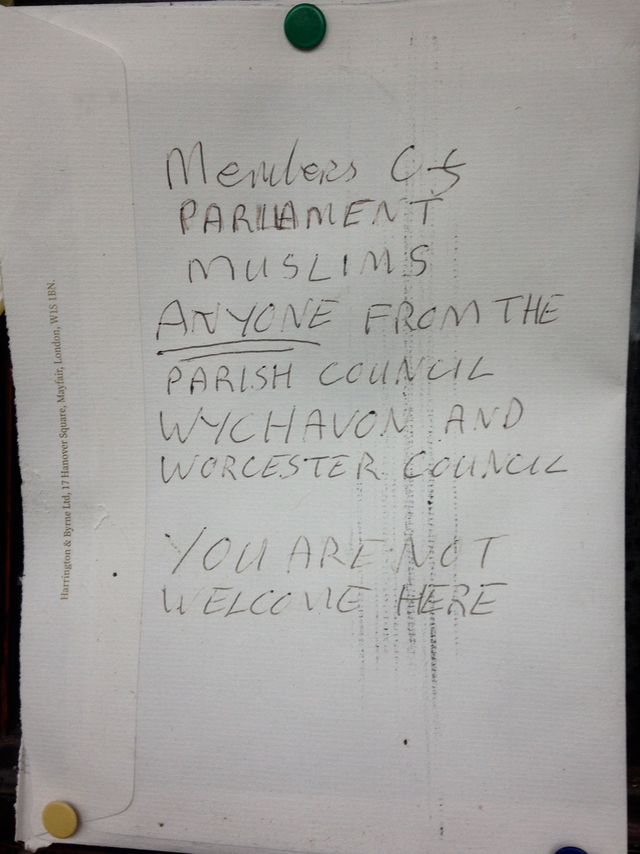 Members Of
PARLIAMENT
MUSLIMS
ANYONE FROM THE
PARISH COUNCIL
WYCHAVON AND
WORCESTER COUNCIL
YOU ARE NOT
WELCOME HERE
Harrington & Byrne Ltd, 17 Hanover Square, Mayfair, London, W1S 1BN.